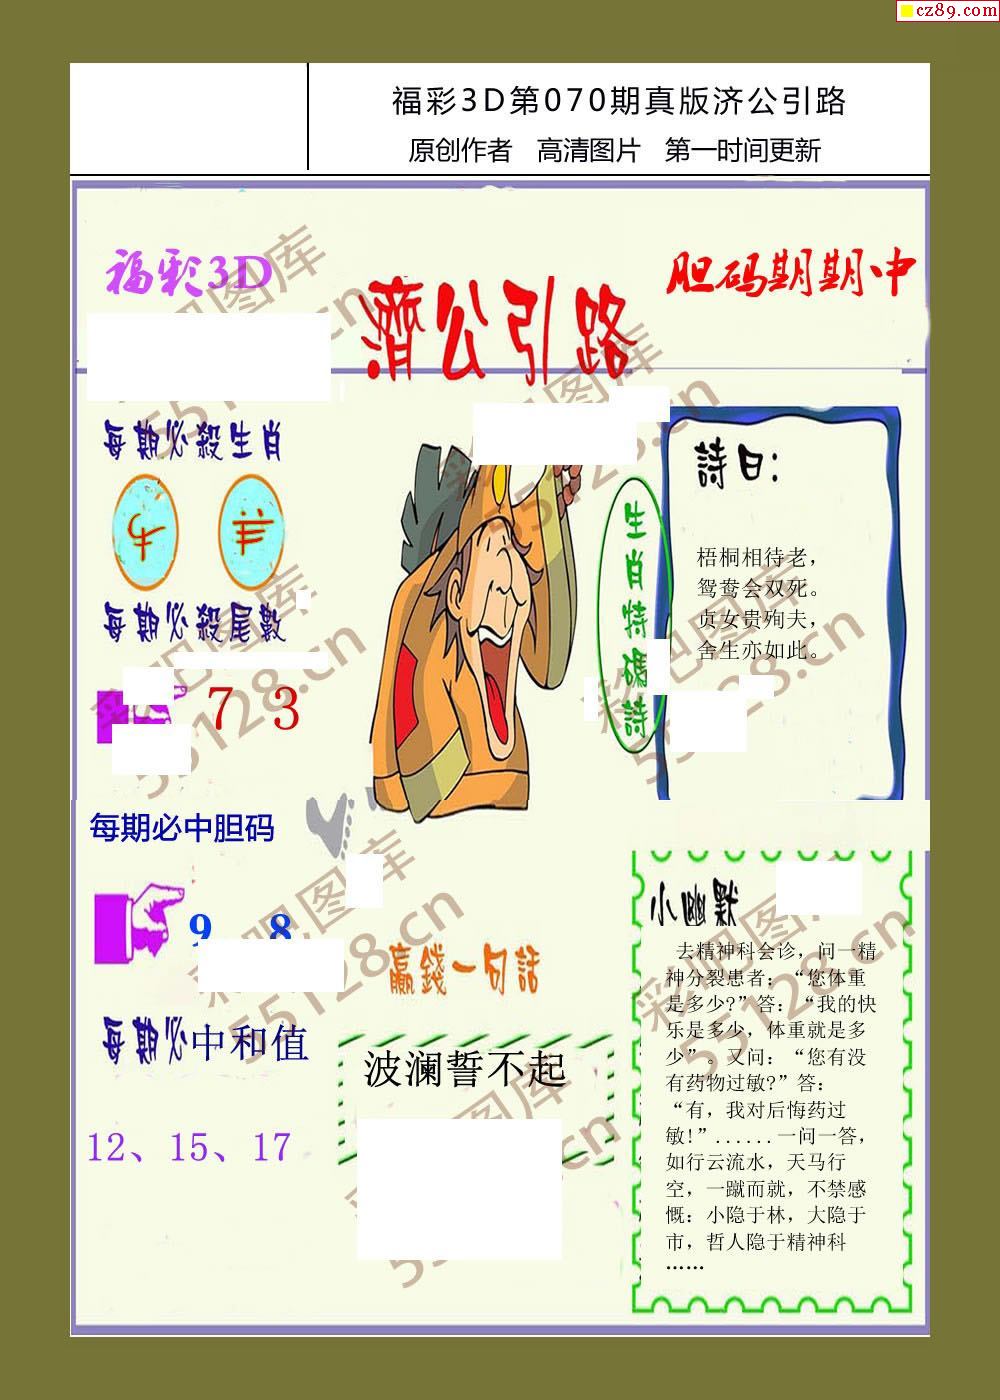 cz89.com
福彩3D第070期真版济公引路
原创作者 高清图片 第一时间更新
福彩3D
胆码期期中
濟公引路
每期必殺生肖
牛 羊
每期必殺尾數
7 3
每期必中胆码
9 8
每期必中和值
12、15、17
生肖特碼詩
詩曰：
梧桐相待老，
鸳鸯会双死。
贞女贵殉夫，
舍生亦如此。
贏錢一句話
波澜誓不起
小幽默
去精神科会诊，问一精
神分裂患者：“您体重
是多少?”答：“我的快
乐是多少，体重就是多
少”。又问：“您有没
有药物过敏?”答：
“有，我对后悔药过
敏!”......一问一答，
如行云流水，天马行
空，一蹴而就，不禁感
慨：小隐于林，大隐于
市，哲人隐于精神科
……
彩吧图库
55128.cn
彩吧图库
55128.cn
彩吧图库
55128.cn
彩吧图库
55128.cn